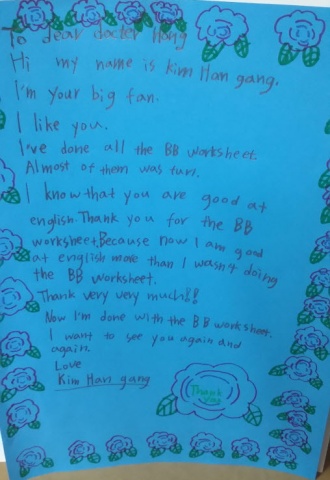 To dear docter Hong
Hi my name is Kim Han gang.
I'm your big fan.
I like you.
I've done all the BB worksheet.
Almost of them was fun.
I know that you are good at
english. Thank you for the BB
worksheet, Because now I am good
at english more than I wasn't doing
the BB worksheet.
Thank very very much!!
Now I'm done with the BB worksheet.
I want to see you again and
again.
Love
Kim Han gang
Thank
you